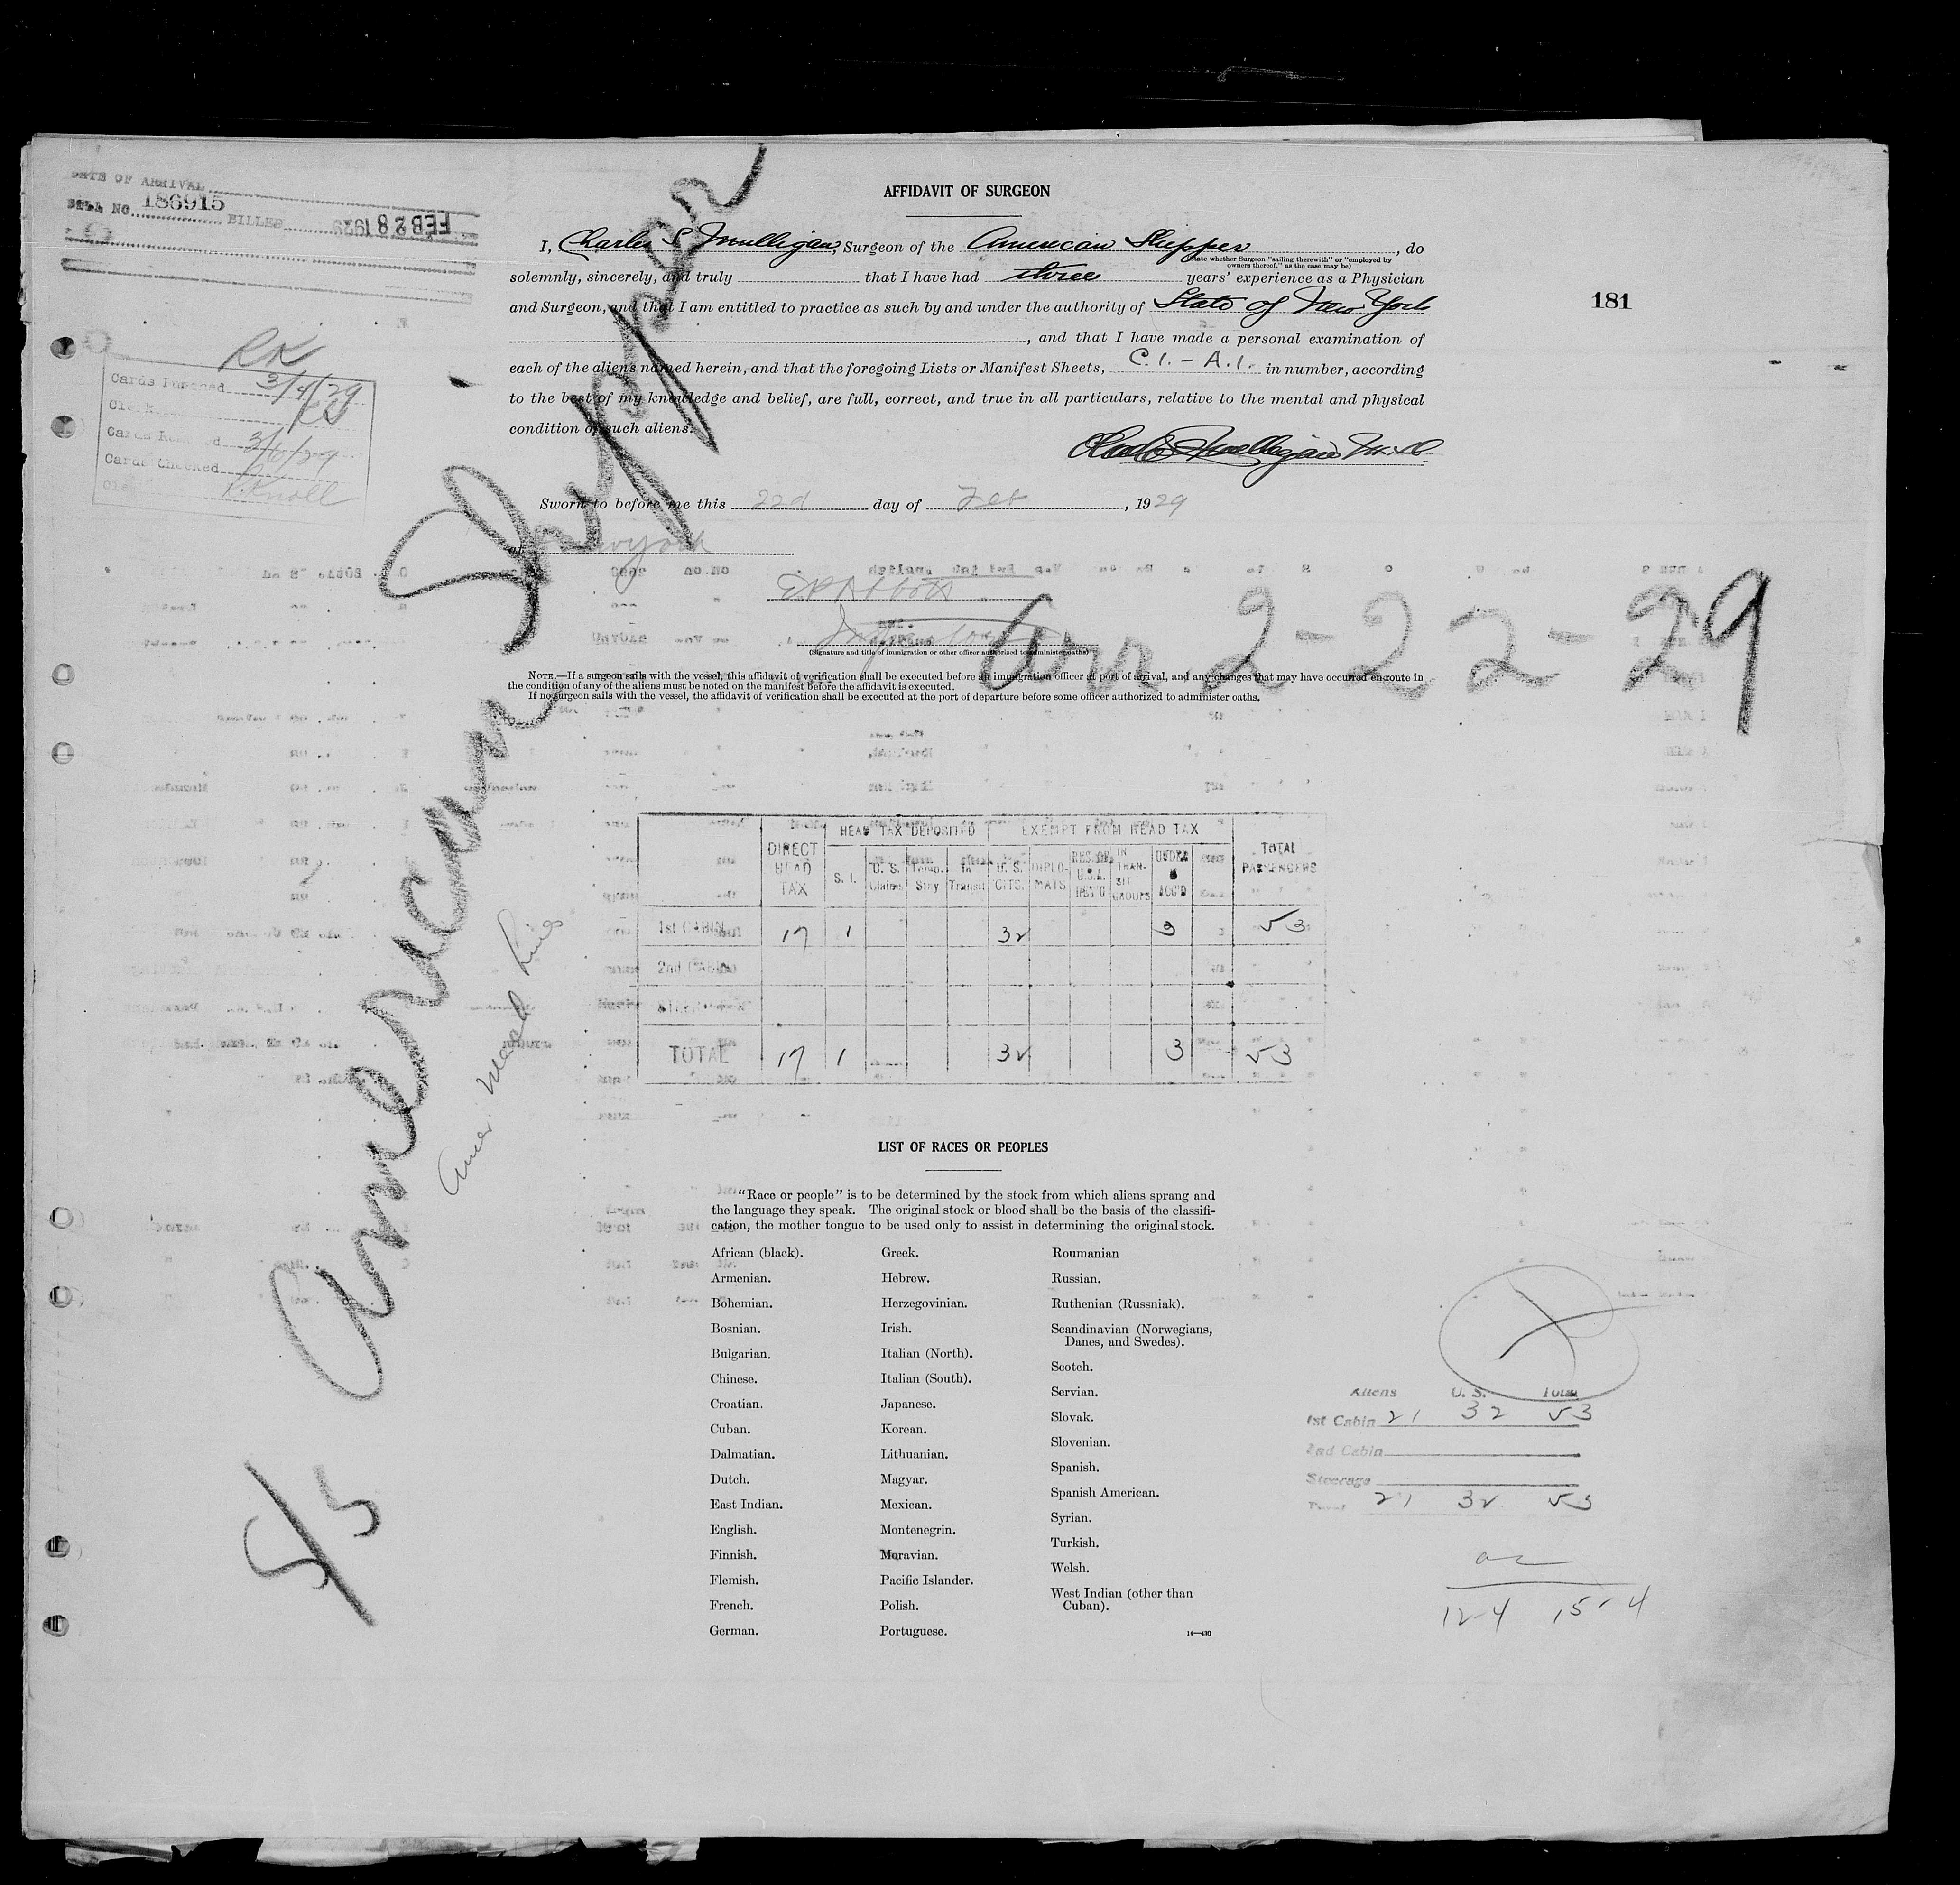 DATE OF ARRIVAL
BILL NO 186915 BILLED FEB 28 1929
AFFIDAVIT OF SURGEON
I, Charles S. Mulligan, Surgeon of the American Shipper, do
(State whether Surgeon "sailing therewith" or "employed by owners thereof," as the case may be)
solemnly, sincerely, and truly that I have had three years' experience as a Physician
and Surgeon, and that I am entitled to practice as such by and under the authority of State of New York
, and that I have made a personal examination of
each of the aliens named herein, and that the foregoing Lists or Manifest Sheets, C.1. - A.1. in number, according
to the best of my knowledge and belief, are full, correct, and true in all particulars, relative to the mental and physical
condition of such aliens.
Charles S. Mulligan M.D.
181
RK
Cards Indexed 3/4/29
Clerk
Cards Removed 3/6/29
Cards Checked
P. Knoll
Sworn to before me this 22d day of Feb, 1929
at New York
E P Abbott
Inspector
(Signature and title of immigration or other officer authorized to administer oaths)
NOTE.—If a surgeon sails with the vessel, this affidavit of verification shall be executed before an immigration officer at port of arrival, and any changes that may have occurred en route in
the condition of any of the aliens must be noted on the manifest before the affidavit is executed.
If no surgeon sails with the vessel, the affidavit of verification shall be executed at the port of departure before some officer authorized to administer oaths.
S/S American Shipper
Arr 2-22-29
Amer. Merch Lines
HEAD TAX DEPOSITED EXEMPT FROM HEAD TAX
DIRECT HEAD TAX S. I. U. S. Claims Temp. Stay In Transit U. S. CITS. DIPLOMATS RES. OF U.S.A. RET'G IN TRANSIT GROUPS UNDER ACC'D TOTAL PASSENGERS
1st CABIN 17 1 32 3 53
2nd CABIN
TOTAL 17 1 32 3 53
LIST OF RACES OR PEOPLES
"Race or people" is to be determined by the stock from which aliens sprang and
the language they speak. The original stock or blood shall be the basis of the classifi-
cation, the mother tongue to be used only to assist in determining the original stock.
African (black).
Armenian.
Bohemian.
Bosnian.
Bulgarian.
Chinese.
Croatian.
Cuban.
Dalmatian.
Dutch.
East Indian.
English.
Finnish.
Flemish.
French.
German.
Greek.
Hebrew.
Herzegovinian.
Irish.
Italian (North).
Italian (South).
Japanese.
Korean.
Lithuanian.
Magyar.
Mexican.
Montenegrin.
Moravian.
Pacific Islander.
Polish.
Portuguese.
Roumanian
Russian.
Ruthenian (Russniak).
Scandinavian (Norwegians,
Danes, and Swedes).
Scotch.
Servian.
Slovak.
Slovenian.
Spanish.
Spanish American.
Syrian.
Turkish.
Welsh.
West Indian (other than
Cuban).
Aliens U. S. Total
1st Cabin 21 32 53
2nd Cabin
Steerage
Total 21 32 53
12-4 15-4